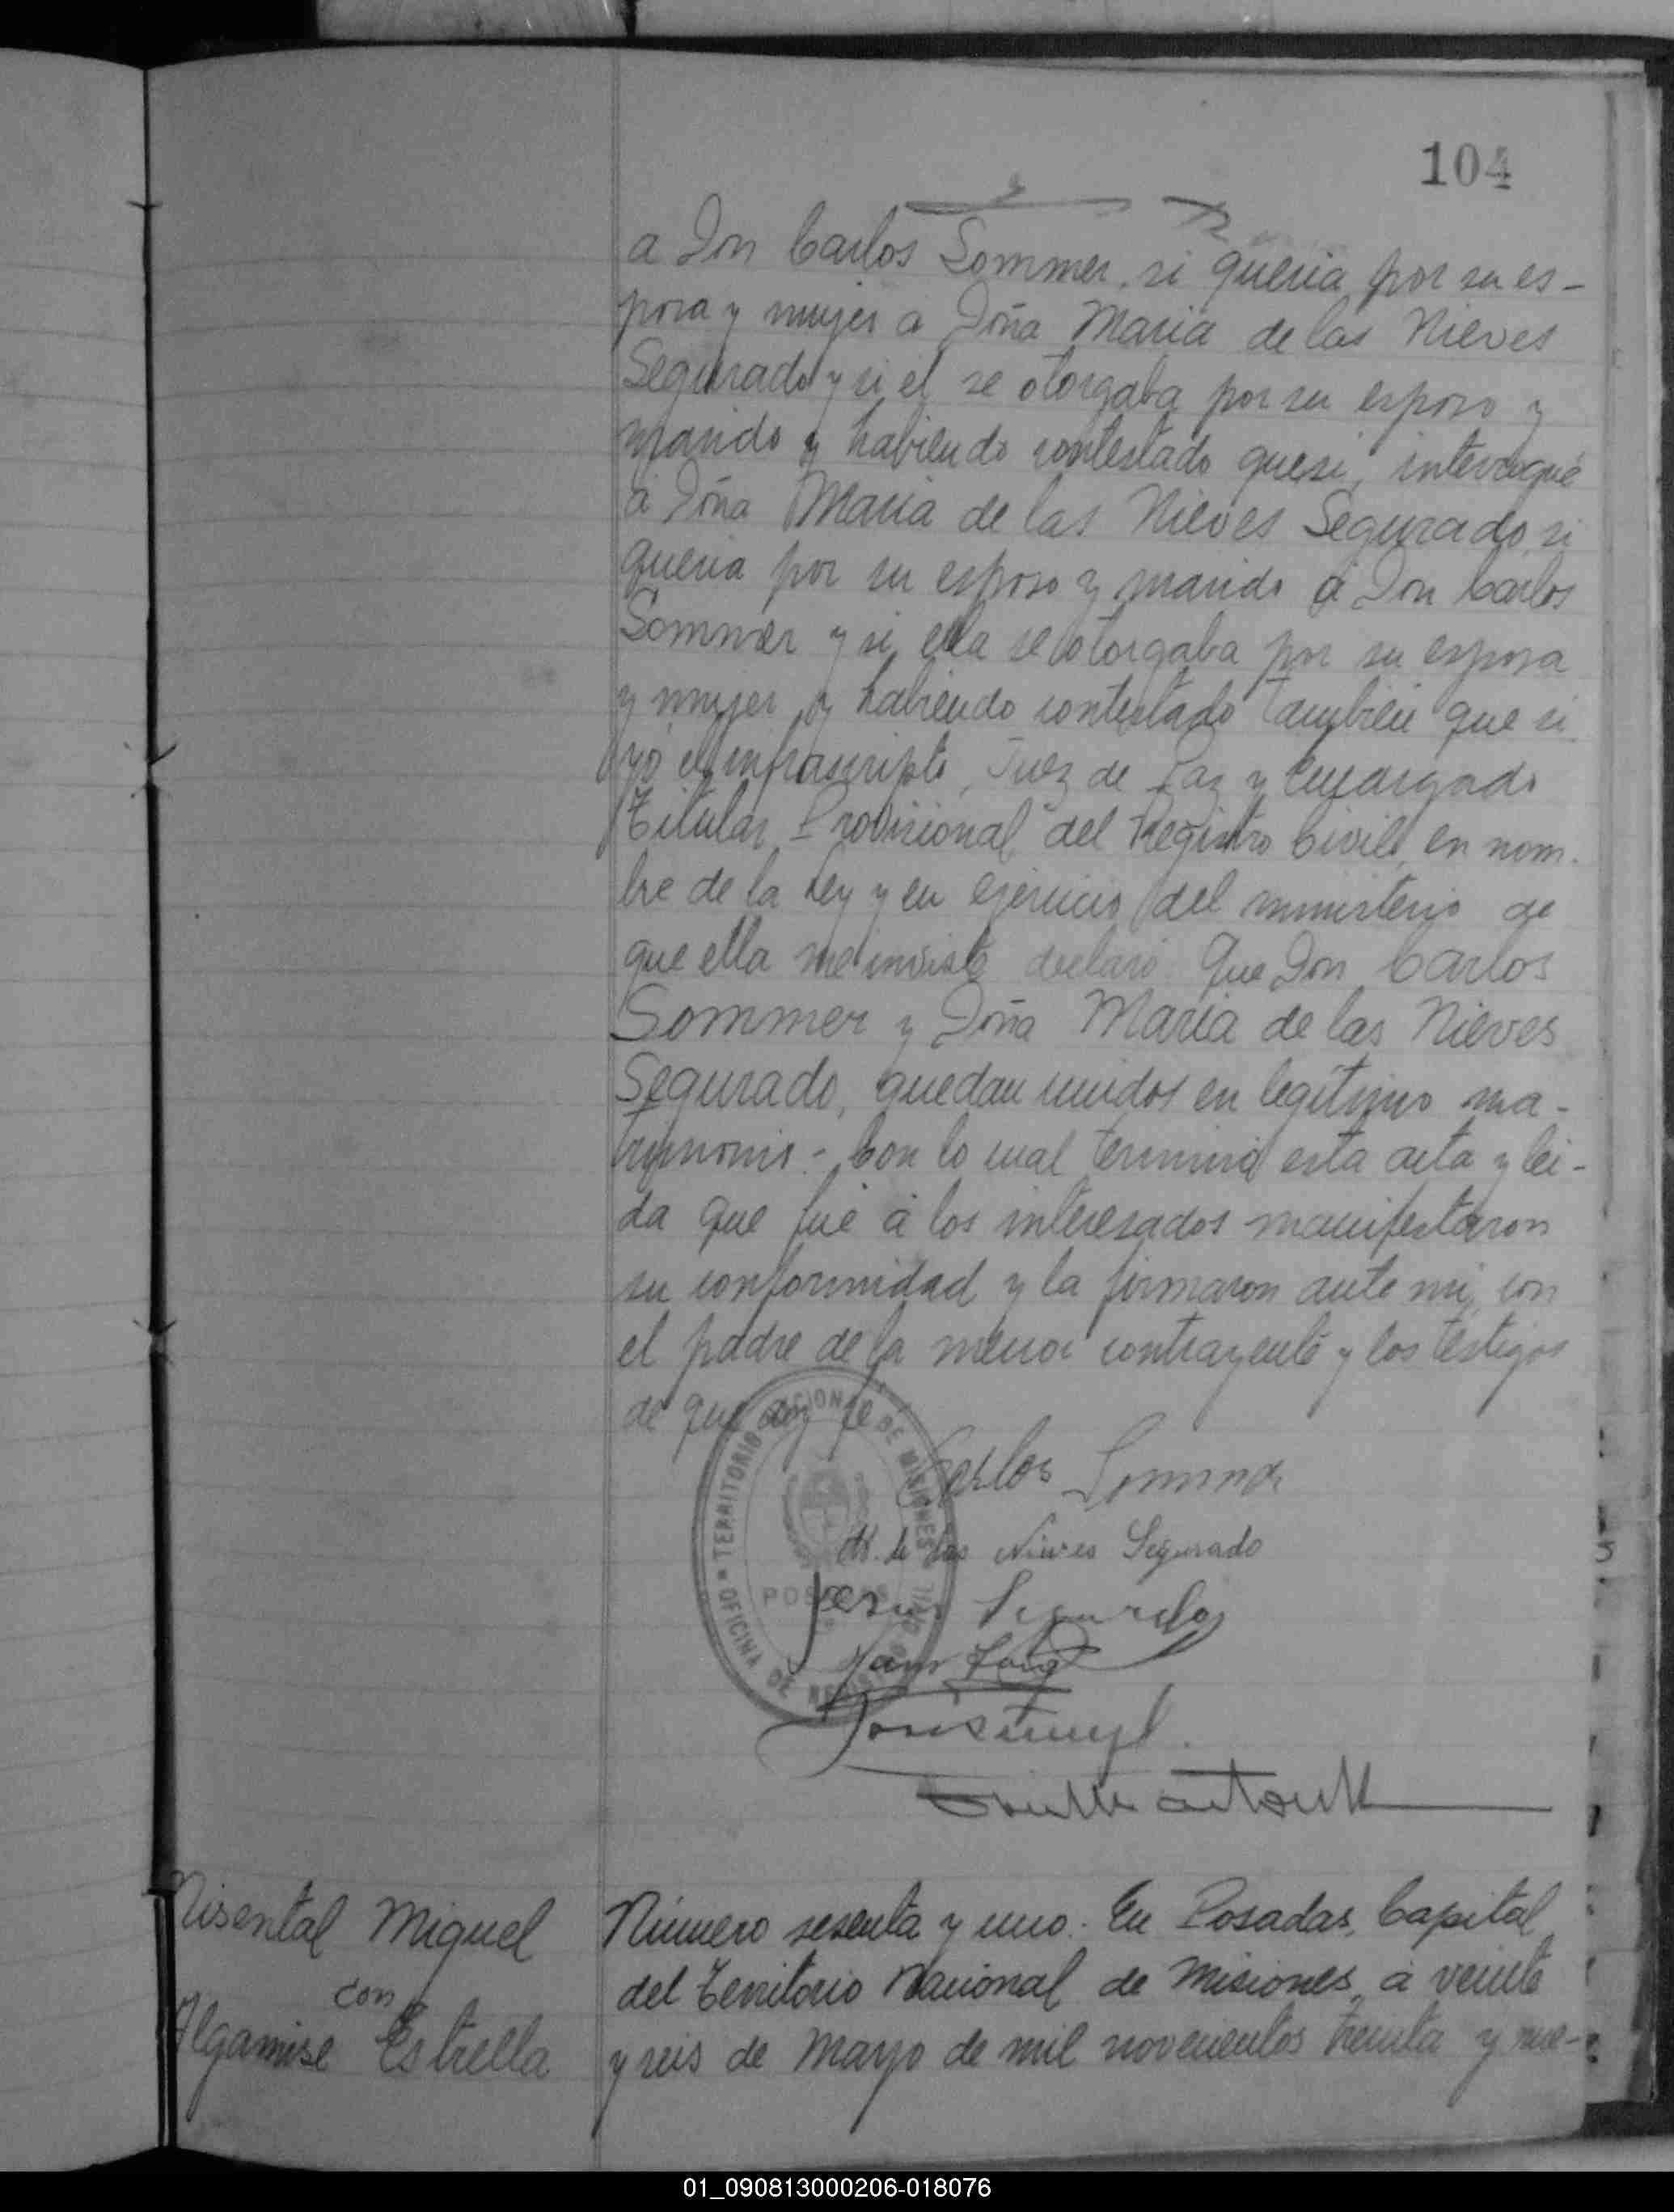 104
a Don Carlos Sommer, si queria por su es-
posa y mujer a Doña Maria de las Nieves
Segurado y si el se otorgaba por su esposo y
marido y habiendo contestado que si, interrogué
á Doña Maria de las Nieves Segurado si
queria por su esposo y marido á Don Carlos
Sommer y si ella se otorgaba por su esposa
y mujer y habiendo contestado tambien que si
yó el infrascripto, Juez de Paz y Encargado
Titular Provisional del Registro Civil, en nom-
bre de la Ley y en ejercicio del ministerio de
que ella me inviste declaró Que Don Carlos
Sommer y Doña Maria de las Nieves
Segurado, quedan unidos en legítimo ma-
trimonio.- Con lo cual terminó esta acta y lei-
da que fué á los interesados manifestaron
su conformidad y la firmaron ante mi, con
el padre de la menor contrayente y los testigos
de que doy fé
Carlos Sommer
M. de las Nieves Segurado
Jesus Segurado
TERRITORIO NACIONAL DE MISIONES
POSADAS
OFICINA DE REGISTRO CIVIL
Nisental Miguel
con
Algamise Estrella
Número sesenta y uno. En Posadas, Capital
del Territorio Nacional de Misiones, á veinte
y seis de Mayo de mil novecientos treinta y nue-
01_090813000206-018076